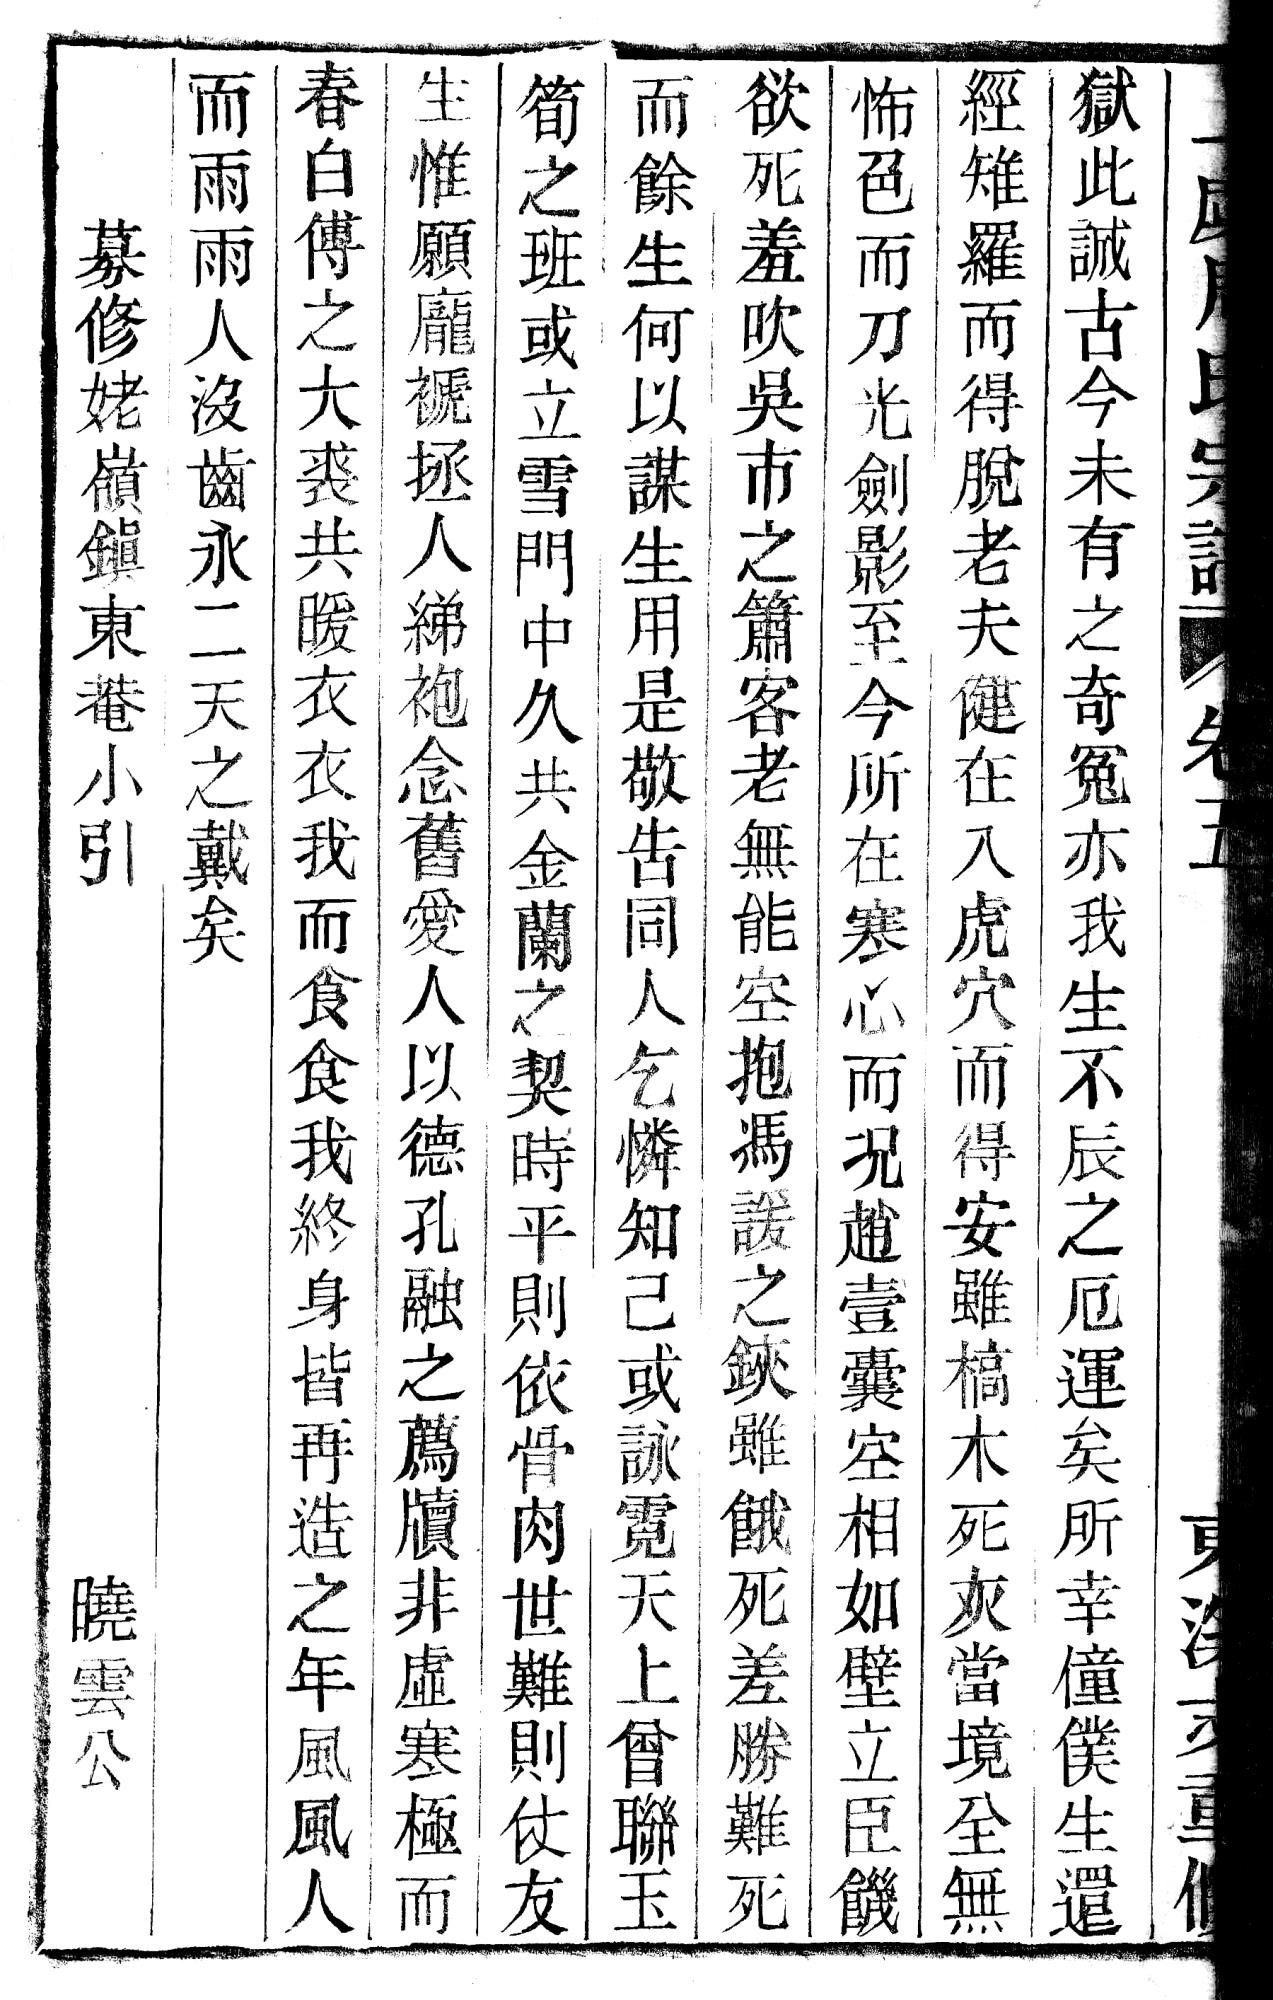 氏宗譜 卷五
獄此誠古今未有之奇冤亦我生不辰之厄運矣所幸僮僕生還
經雉羅而得脫老夫健在入虎穴而得安雖槁木死灰當境全無
怖色而刀光劍影至今所在寒心而況趙壹囊空相如壁立臣饑
欲死羞吹吳市之簫客老無能空抱馮諼之鋏雖餓死差勝難死
而餘生何以謀生用是敬告同人乞憐知己或詠霓天上曾聯玉
筍之班或立雪門中久共金蘭之契時平則依骨肉世難則仗友
生惟願龐褫拯人綈袍念舊愛人以德孔融之薦牘非虛寒極而
春白傅之大裘共暖衣衣我而食食我終身皆再造之年風風人
而雨雨人沒齒永二天之戴矣
募修姥嶺鎮東菴小引 曉雲公